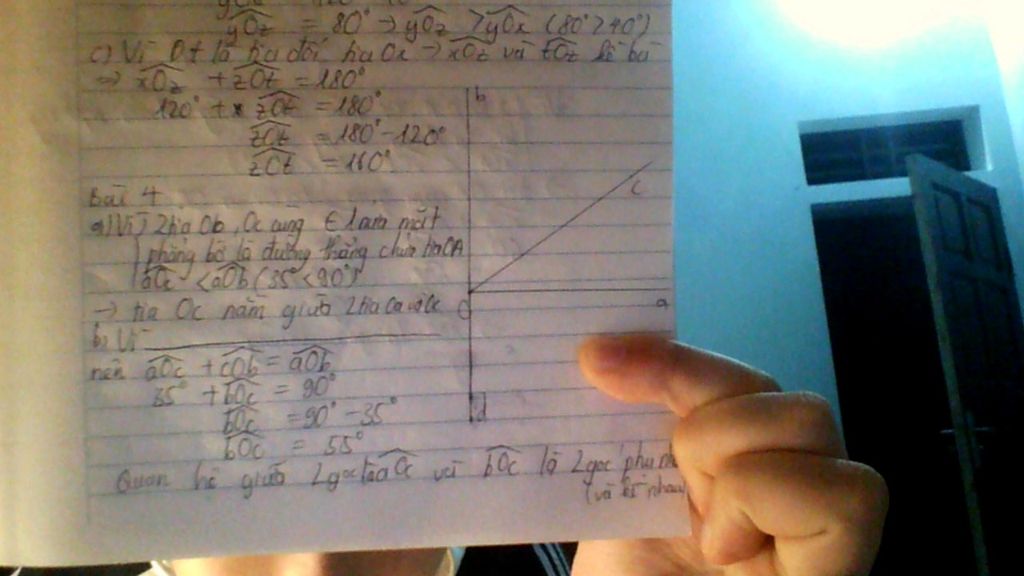 yOz = 80° → yOz > yOx (80° > 40°)
c) Vì Ot là tia đối tia Ox → xOz và tOz kề bù
⇒ xOz + zOt = 180°
120° + zOt = 180°
zOt = 180° - 120°
zOt = 160°
Bài 4
a) Vì 2 tia Ob, Oc cùng ∈ 1 nửa mặt
phẳng bờ là đường thẳng chứa tia OA
aOc < aOb (35° < 90°)
→ tia Oc nằm giữa 2 tia
b) Vì
nên aOc + cOb = aOb
35° + bOc = 90°
bOc = 90° - 35°
bOc = 55°
Quan hệ giữa 2 góc là aOc và bOc là 2 góc phụ
(và kề nhau)
b
c
O
a
d